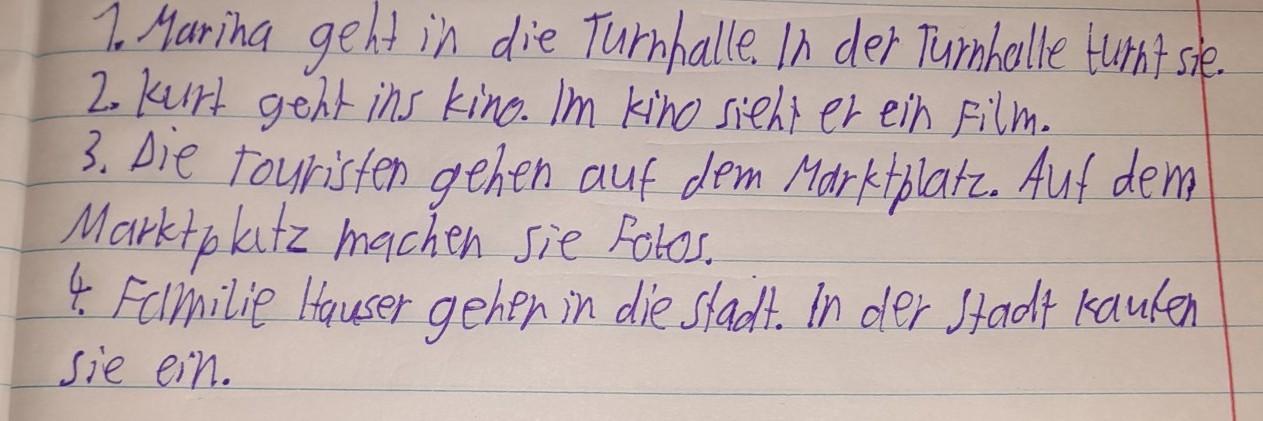 1. Marina geht in die Turnhalle. In der Turnhalle turnt sie.
2. Kurt geht ins Kino. Im Kino sieht er ein Film.
3. Die Touristen gehen auf dem Marktplatz. Auf dem
Marktplatz machen sie Fotos.
4. Familie Hauser gehen in die Stadt. In der Stadt kaufen
sie ein.